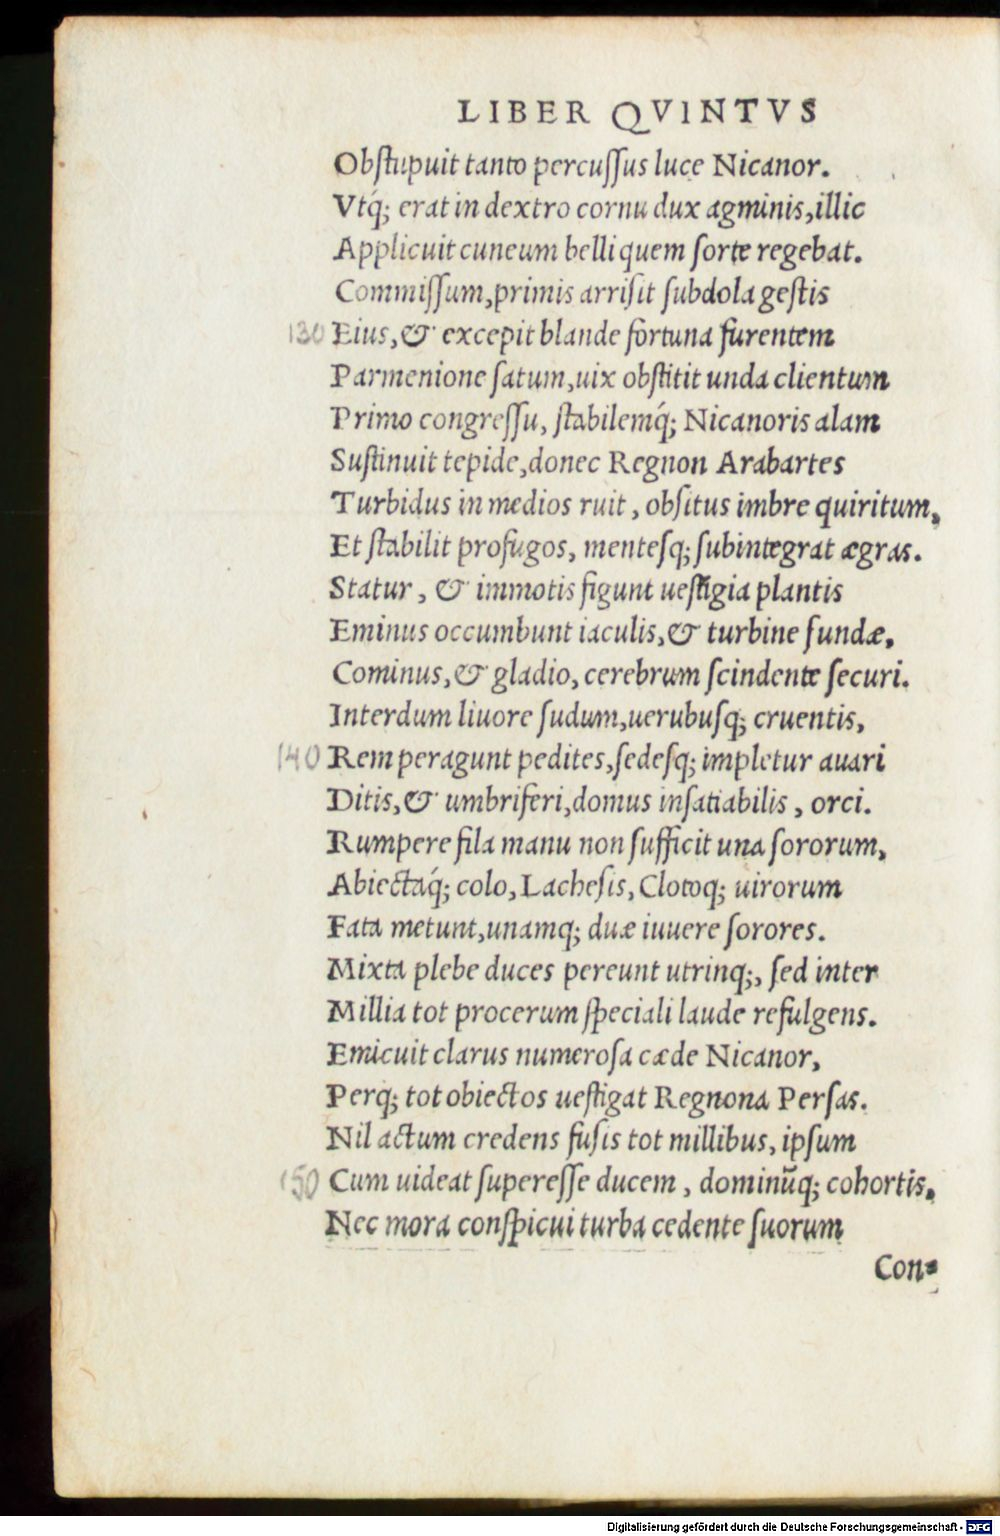 LIBER QVINTVS
Obstupuit tanto percussus luce Nicanor.
Vtq́; erat in dextro cornu dux agminis, illic
Applicuit cuneum belli quem sorte regebat.
Commissum, primis arrisit subdola gestis
130 Eius, & excepit blande fortuna furentem
Parmenione satum, uix obstitit unda clientum
Primo congressu, stabilemq́; Nicanoris alam
Sustinuit tepide, donec Regnon Arabartes
Turbidus in medios ruit, obsitus imbre quiritum,
Et stabilit profugos, mentesq; subintegrat ægras.
Statur, & immotis figunt uestigia plantis
Eminus occumbunt iaculis, & turbine fundæ,
Cominus, & gladio, cerebrum scindente securi.
Interdum liuore sudum, uerubusq; cruentis,
140 Rem peragunt pedites, sedesq; impletur auari
Ditis, & umbriferi, domus insatiabilis, orci.
Rumpere fila manu non sufficit una sororum,
Abiectaq́; colo, Lachesis, Clotoq; uirorum
Fata metunt, unamq; duæ iuuere sorores.
Mixta plebe duces pereunt utrinq;, sed inter
Millia tot procerum speciali laude refulgens.
Emicuit clarus numerosa cæde Nicanor,
Perq; tot obiectos uestigat Regnona Persas.
Nil actum credens fusis tot millibus, ipsum
150 Cum uideat superesse ducem, dominũq; cohortis,
Nec mora conspicui turba cedente suorum
Con-
Digitalisierung gefördert durch die Deutsche Forschungsgemeinschaft - DFG